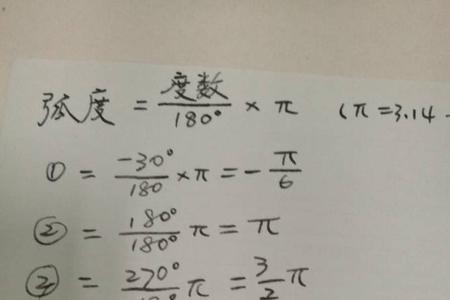 弧度 = 度数/180° × π (π=3.14
① = -30°/180 ×π = -π/6
② = 180°/180° π = π
③ = 270°/180° π = 3/2 π